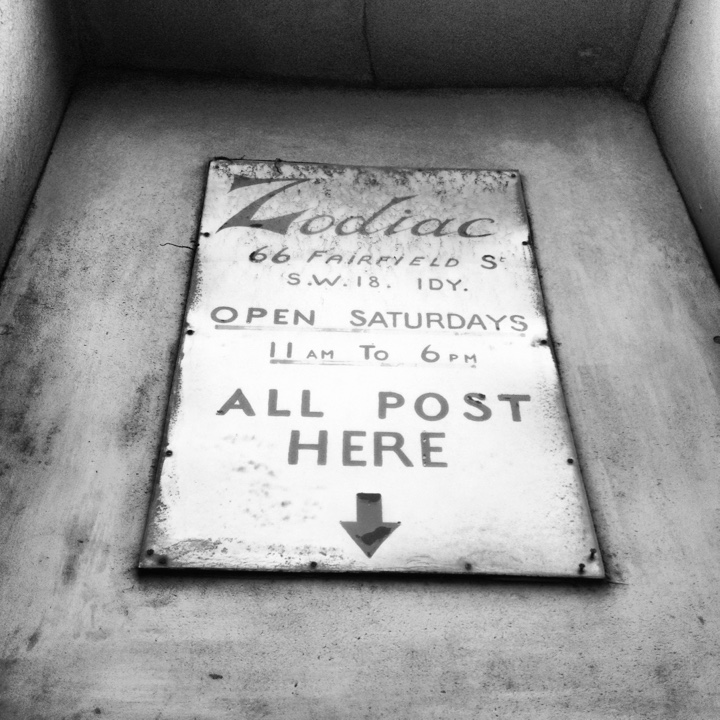 Zodiac
66 FAIRFIELD St
S.W.18. 1DY.
OPEN SATURDAYS
11 AM TO 6 PM
ALL POST
HERE